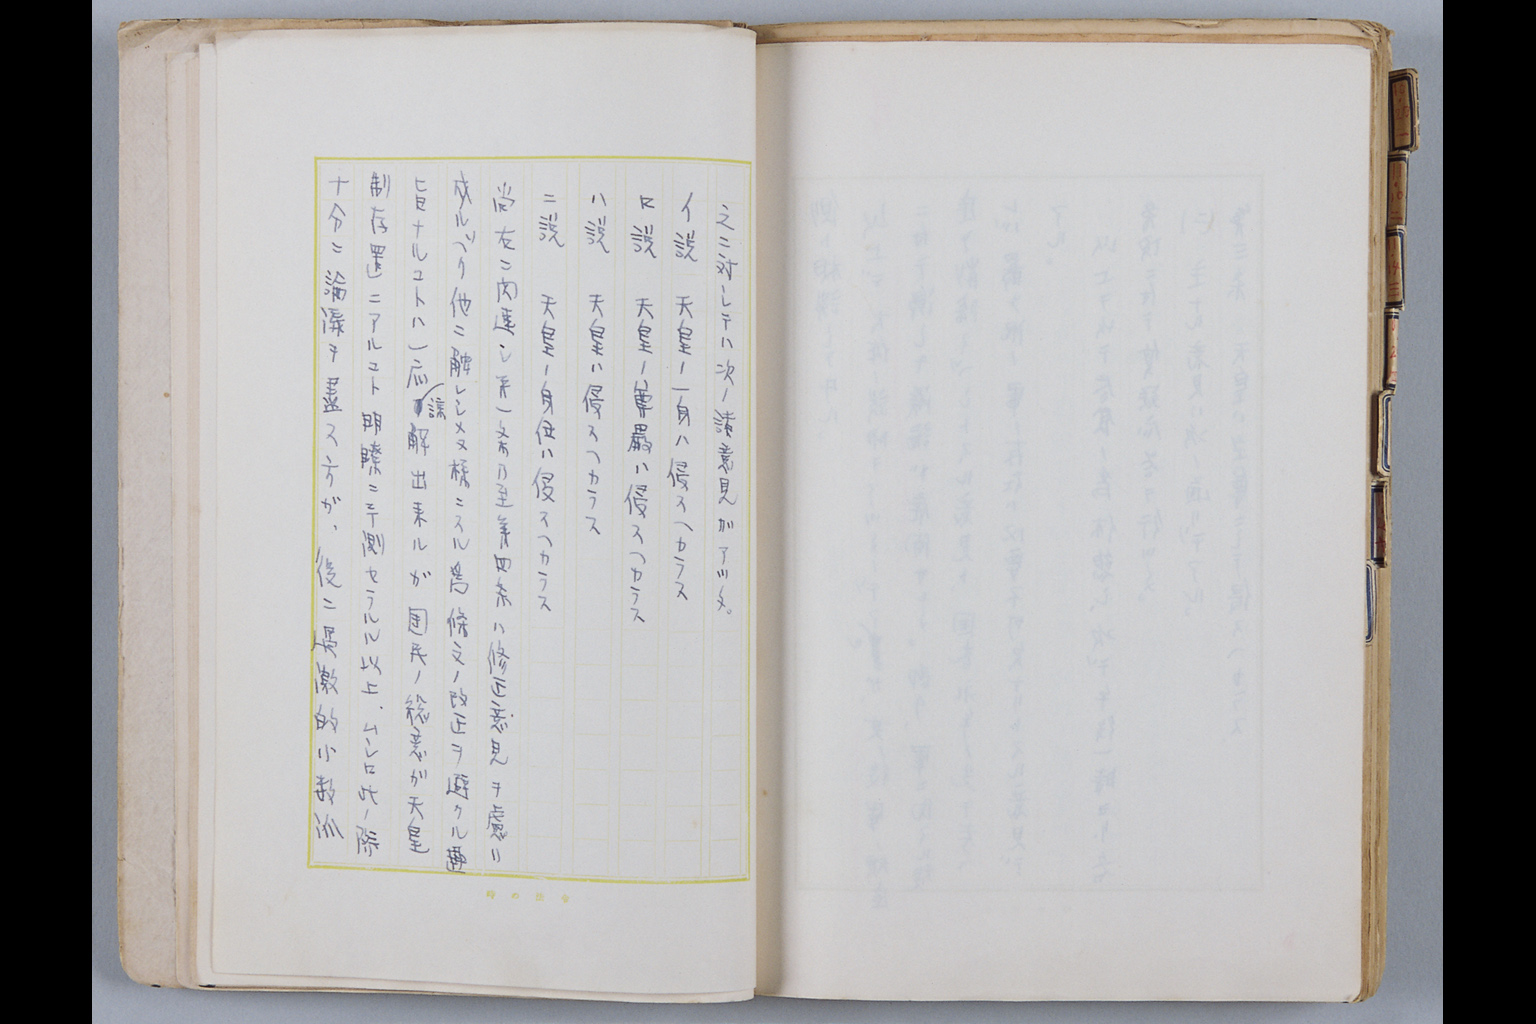 之ニ対シテハ次ノ諸意見ガアツタ。
イ説　天皇ノ一身ハ侵スヘカラス
ロ説　天皇ノ尊厳ハ侵スヘカラス
ハ説　天皇ハ侵スヘカラス
ニ説　天皇ノ身位ハ侵スヘカラス
尚左ニ関連シ第一条乃至第四条ハ修正意見ヲ慮ハ
成ルベク他ニ触レシメヌ様ニスル為條文ノ改正ヲ避クル趣
旨ナルコトハ一応諒解出来ルガ国民ノ総意ガ天皇
制存置ニアルコト明瞭ニ予測セラルル以上、ムシロ此ノ際
十分ニ論議ヲ盡ス方ガ、後ニ過激的小数派